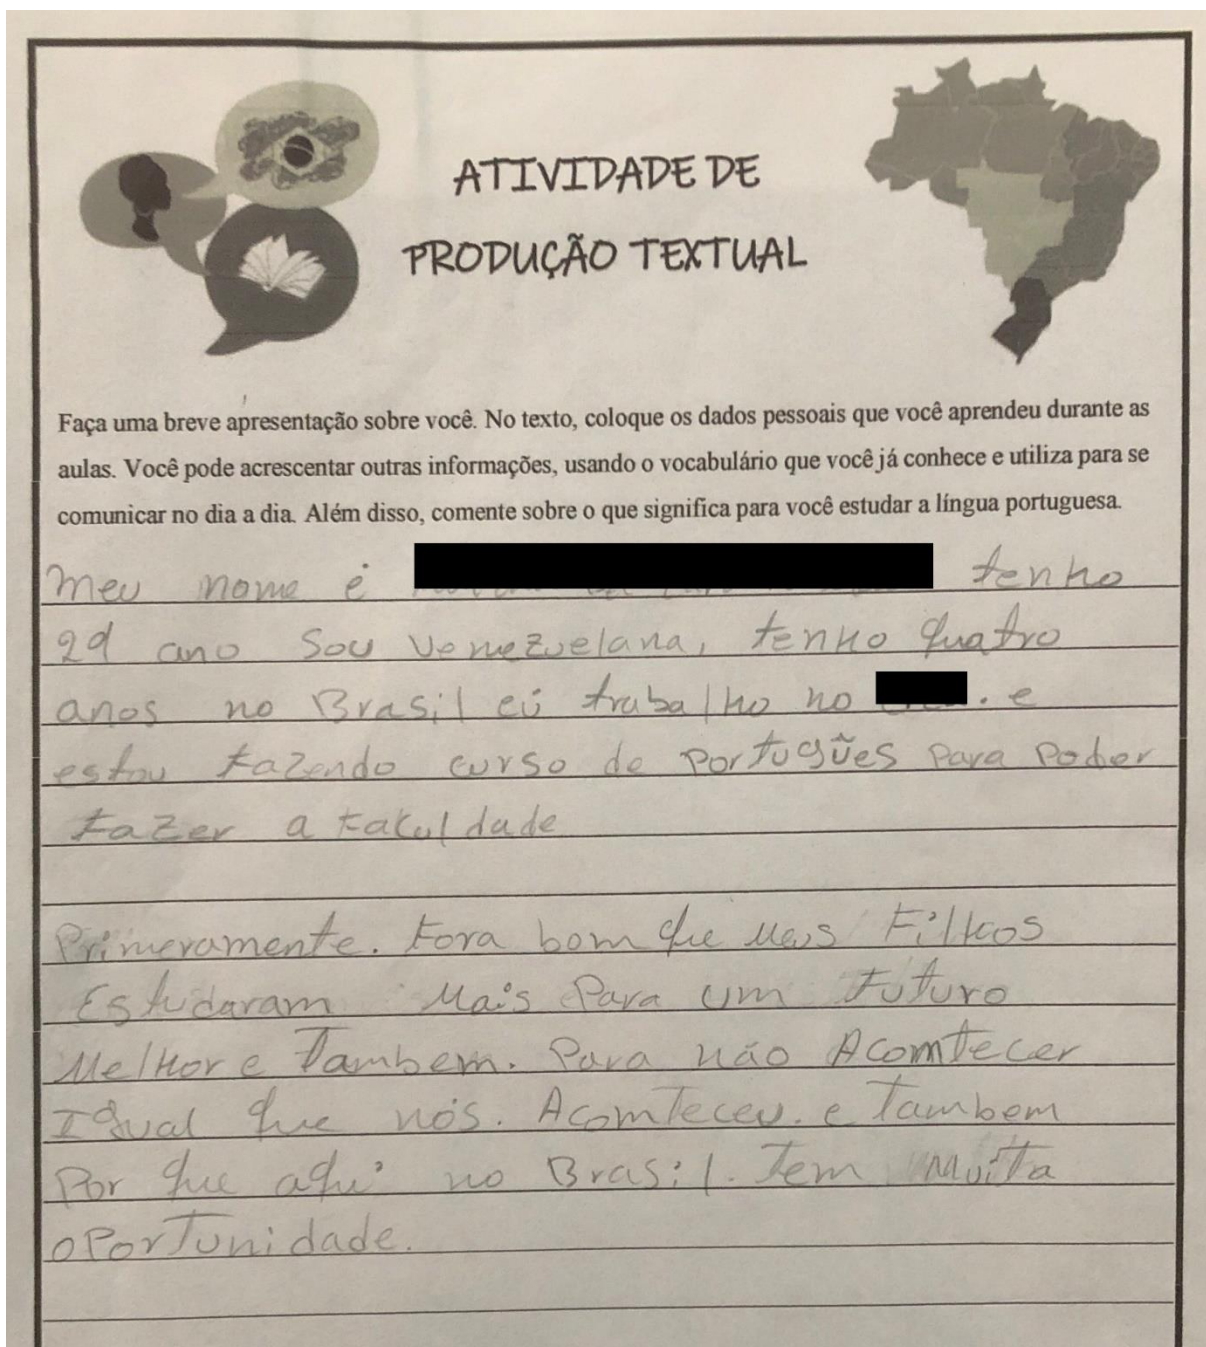 ATIVIDADE DE
PRODUÇÃO TEXTUAL
Faça uma breve apresentação sobre você. No texto, coloque os dados pessoais que você aprendeu durante as
aulas. Você pode acrescentar outras informações, usando o vocabulário que você já conhece e utiliza para se
comunicar no dia a dia. Além disso, comente sobre o que significa para você estudar a língua portuguesa.
Meu nome é tenho
29 ano Sou Venezuelana, tenho quatro
anos no Brasil eú trabalho no . e
estou fazendo curso de Portugũes Para Poder
Fazer a Fakuldade
Primeramente. Fora bom que Meus Filhos
Estudaram Mais Para um Futuro
Melhor e Tambem. Para não Acomtecer
Igual que nós. Acomteceu. e Tambem
Por que aqui no Brasil. Tem Muita
oPorTunidade.